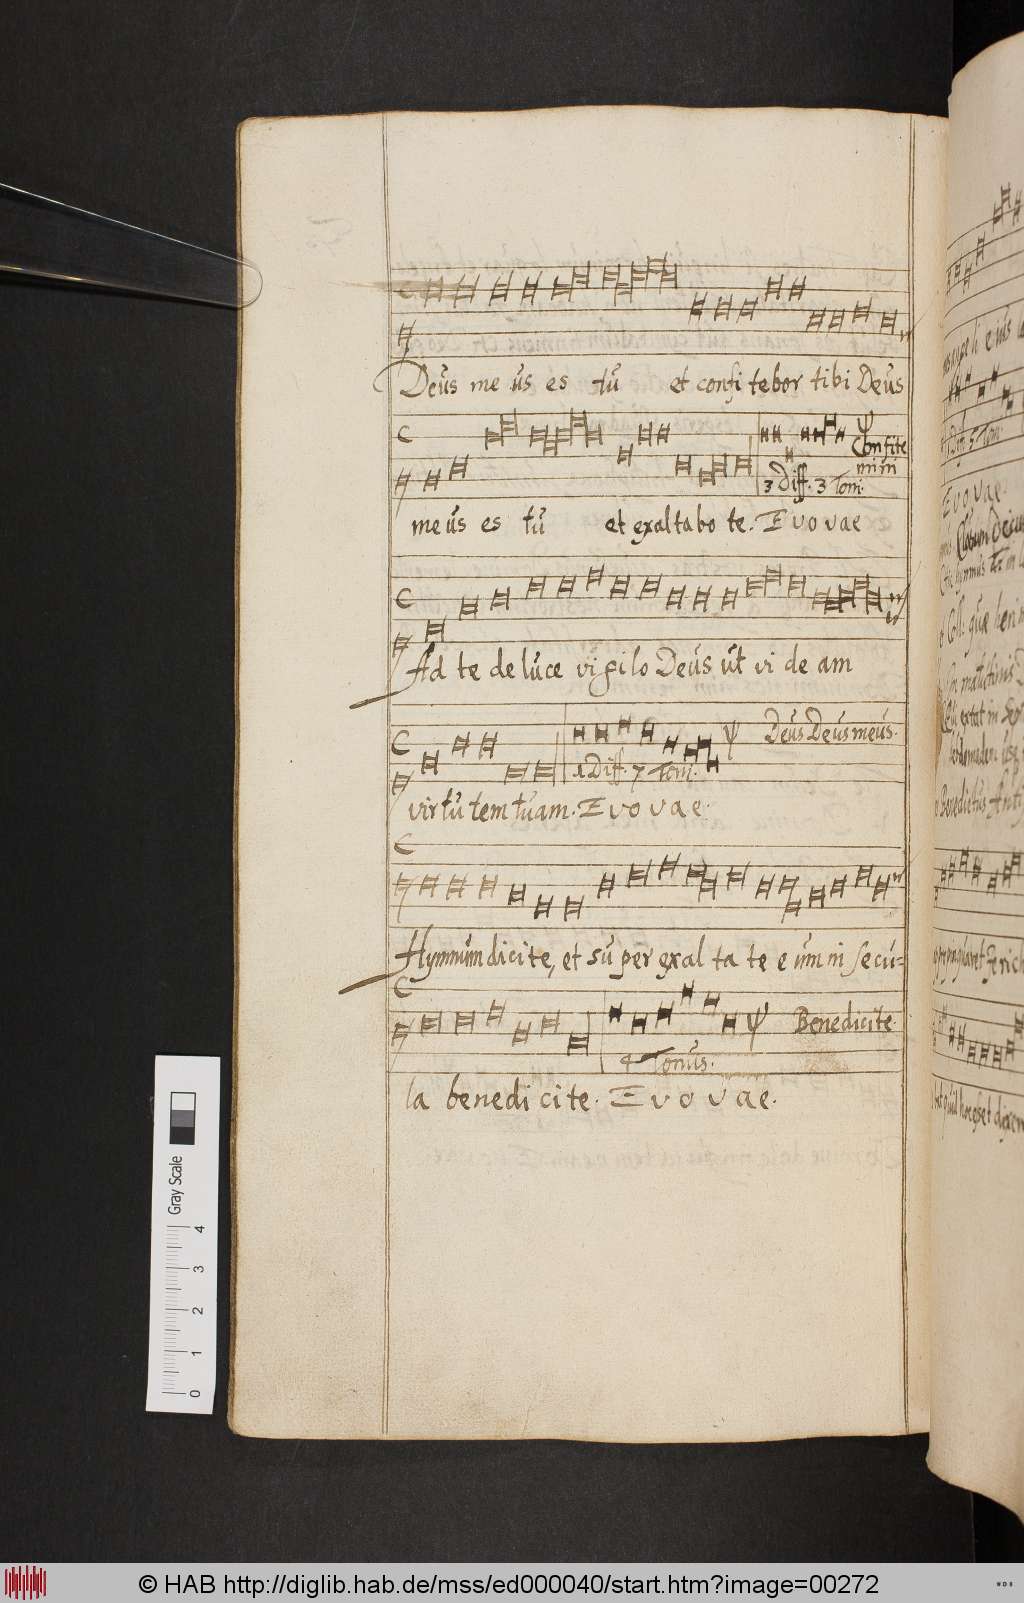 Deus me us es tu et confi tebor tibi Deus
Confite
mini
3 Diff. 3 Toni.
me us es tu et exaltabo te. E v o v ae
Ad te de luce vigilo Deus ut vi de am
Deus Deus meus.
1 Diff. 7 Toni.
virtutem tuam. E v o v a e.
Hymnum dicite, et super exal ta te e um in secu=
Benedicite.
4 Tonus.
la benedi ci te. E v o v a e.
E v o v ae
Gray Scale
0 1 2 3 4
© HAB http://diglib.hab.de/mss/ed000040/start.htm?image=00272